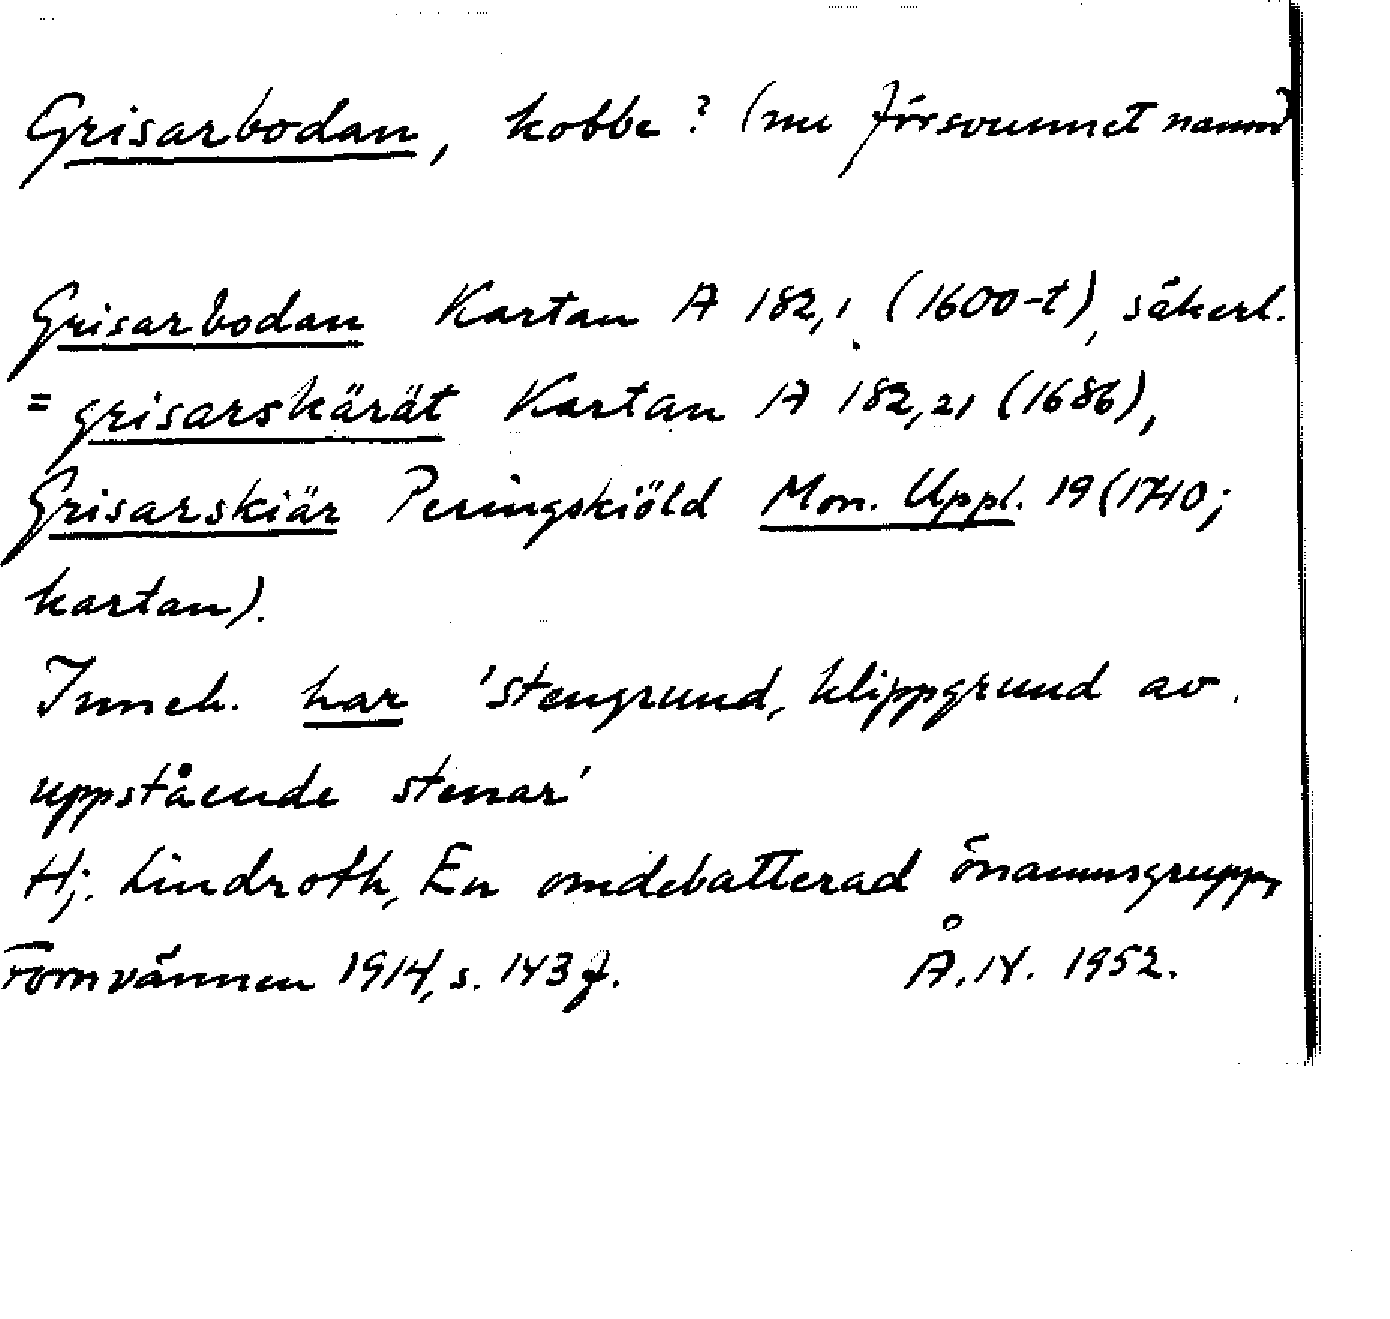 Grisarbodan, kobbe? (nu försvunnet namn)
Grisarbodan Kartan A 182,1 (1600-t), säkerl.
= grisarskärät Kartan A 182,21 (1686),
Grisarskiär Peringskiöld Mon. Uppl. 19 (1710;
kartan).
Inneh. har 'stengrund, klippgrund av
uppstående stenar'
Hj. Lindroth, En omdebatterad önamnsgrupp,
Fornvännen 1914, s. 143 f. Å.N. 1952.